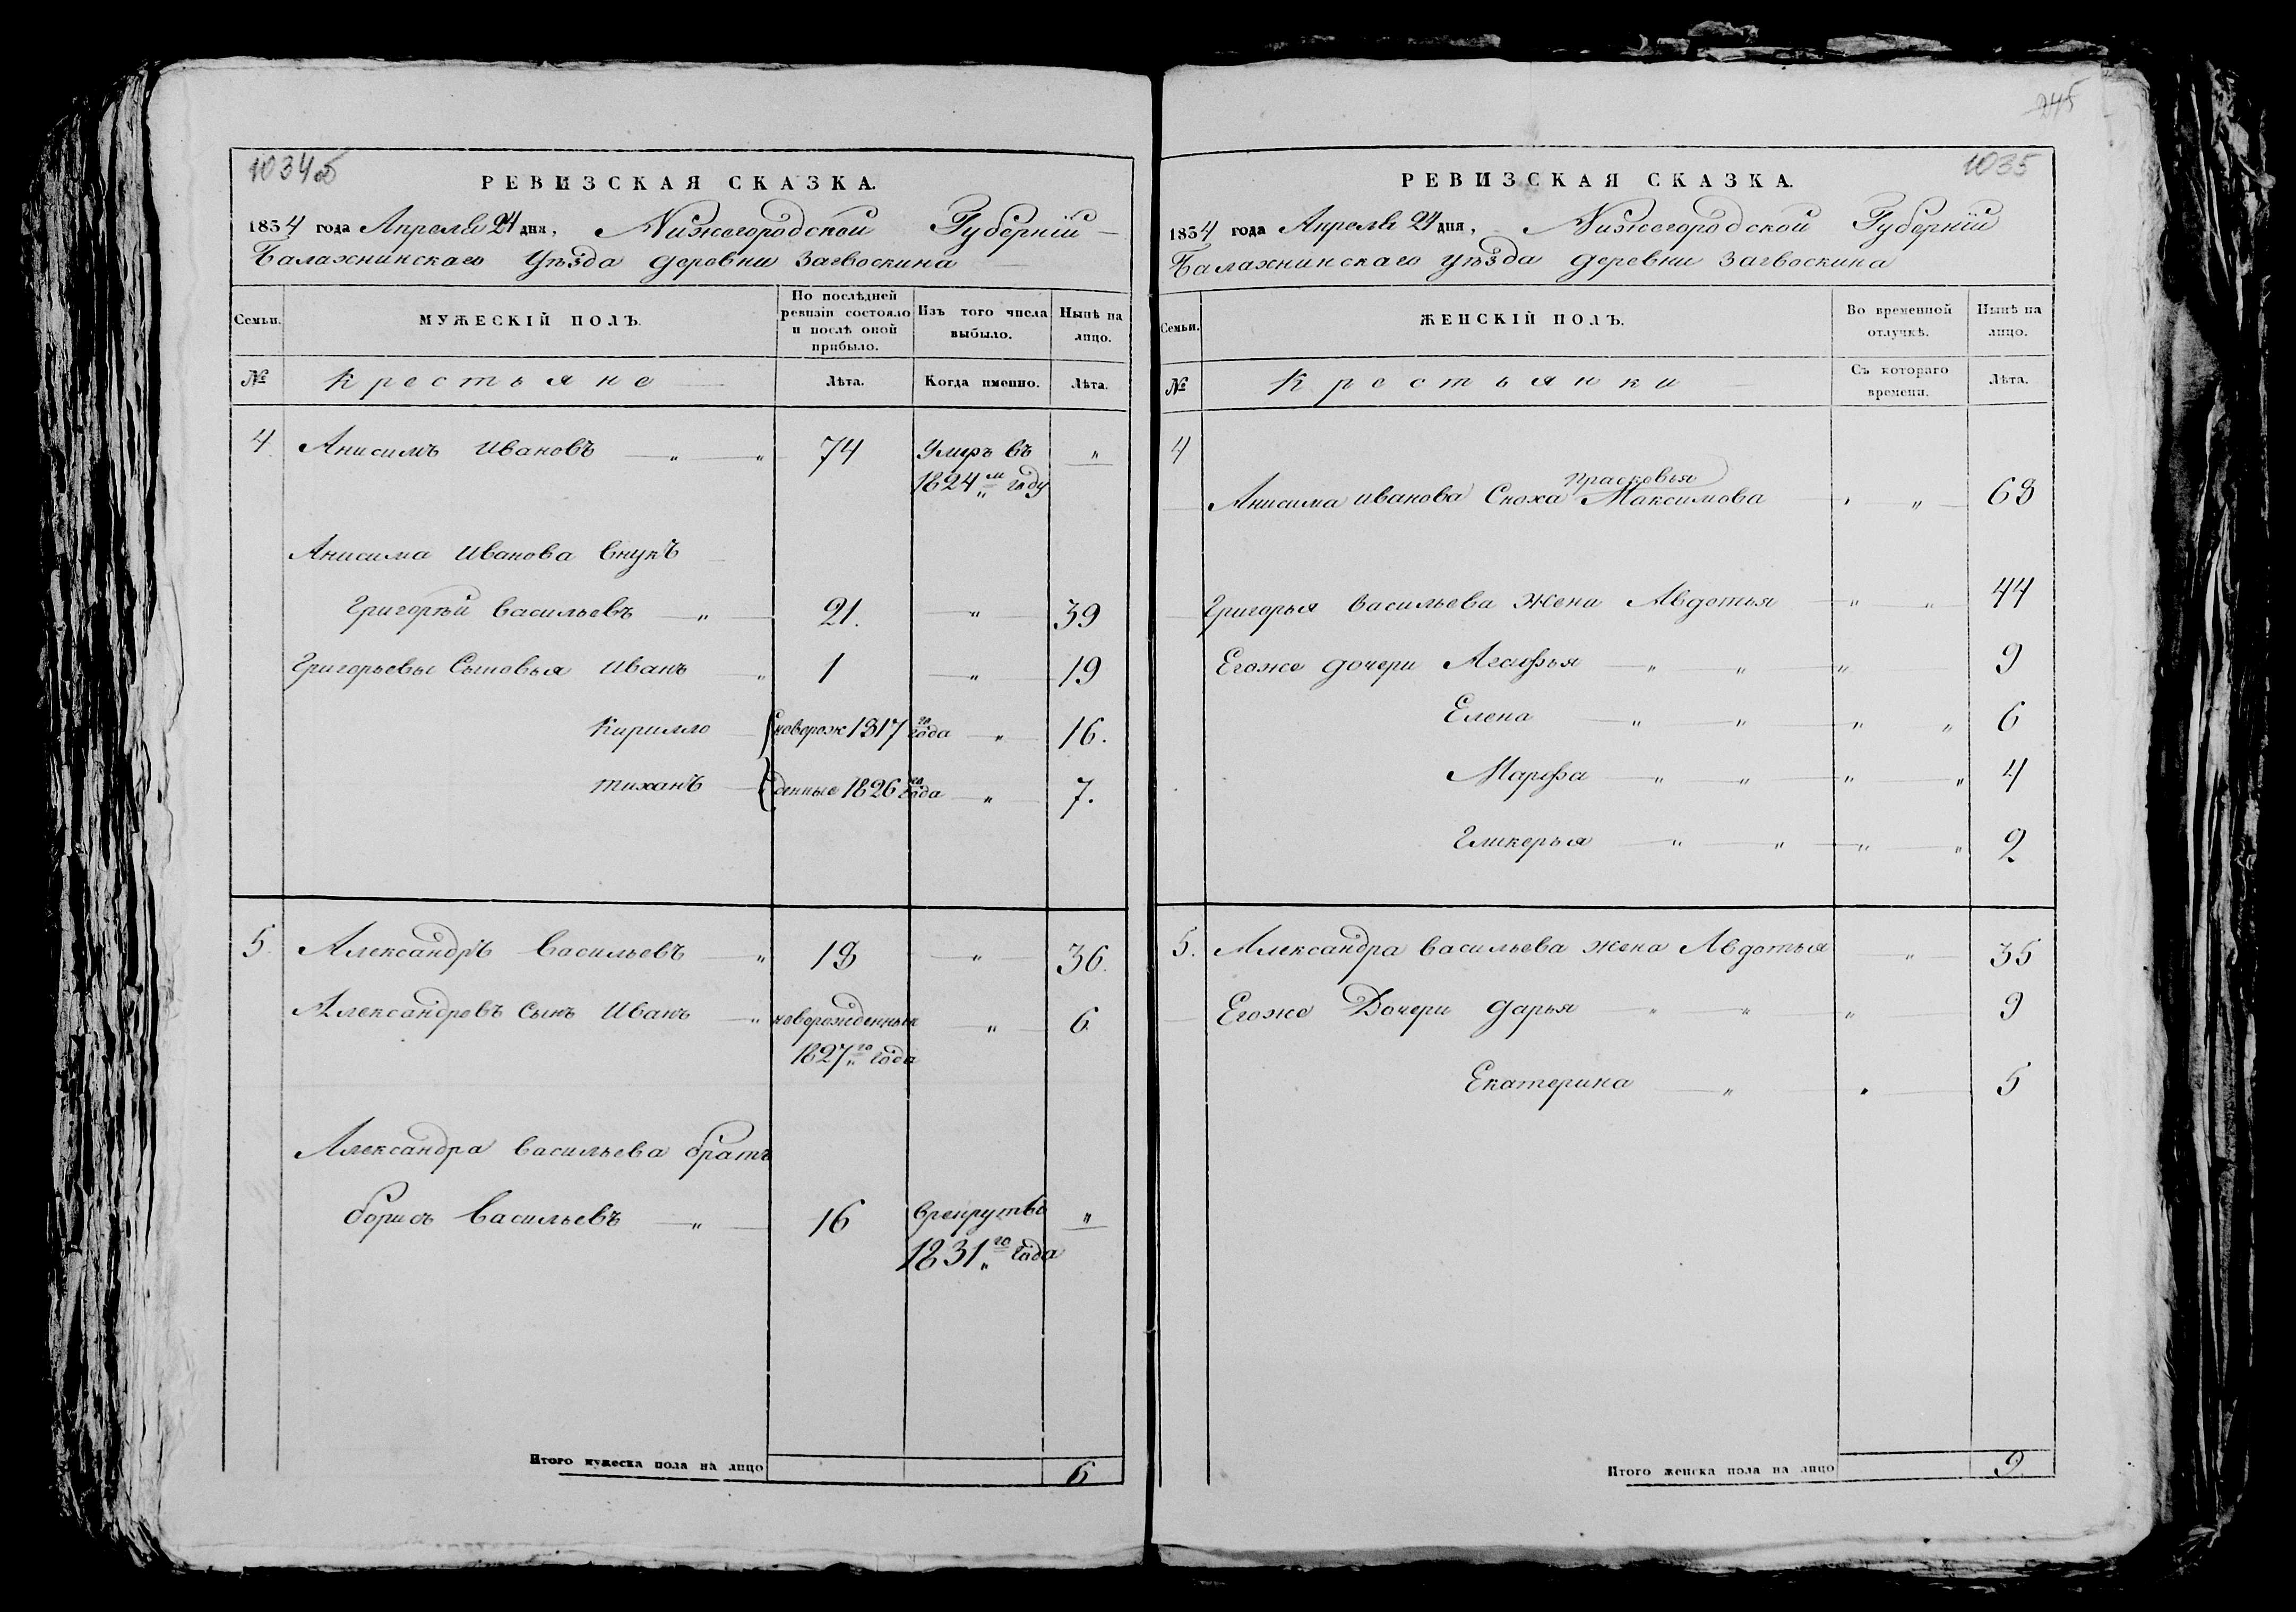 1034об
РЕВИЗСКАЯ СКАЗКА.
1834 года Апреля 24 дня, Нижегородской Губернїи
Балахнинскаго Уѣзда деревни Загвоскина
Семьи.
МУЖЕСКІЙ ПОЛЪ.
По послѣдней
ревизіи состояло
и послѣ оной
прибыло.
Изъ того числа
выбыло.
Нынѣ на
лицо.
№
Крестьяне
Лѣта.
Когда именно.
Лѣта.
4. Анисимъ Ивановъ — „ — „ 74 Умръ въ „
1824м году
Анисима Иванова внукъ
Григорѣй Васильевъ — „ 21. — „ — 39
Григорьевы Сыновья Иванъ „ 1 — „ — 19
Кирилло { новорож 1817го года — „ 16.
Тиханъ { денные 1826го года — „ 7.
5. Александръ Васильевъ — „ 18 — „ 36.
Александровъ Сынъ Иванъ — „ новорожденный „ 6.
1827го года
Александра Васильева братъ
Борисъ Васильевъ — „ 16 Врекруты „
1831го года
Итого мужеска пола на лицо 6
245
1035
РЕВИЗСКАЯ СКАЗКА.
1834 года Апреля 24 дня, Нижегородской Губернїи
Балахнинскаго уѣзда деревни Загвоскина
Семьи.
ЖЕНСКІЙ ПОЛЪ.
Во временной
отлучкѣ.
Нынѣ на
лицо.
№
Крестьянки
Съ котораго
времени.
Лѣта.
4
Прасковья
Анисима Иванова Сноха Максимова — „ „ 68
Григорья Васильева Жена Авдотья — „ „ 44
Егоже дочери Агафья — „ — „ — „ 9
Елена — „ — „ — „ „ 6
Марфа — „ — „ — „ — „ 4
Гликерья — „ — „ — „ — „ 2
5. Александра Васильева жена Авдотья — „ — 35
Егоже Дочери Дарья — „ — „ — „ 9
Екатерина — „ — „ 5
Итого женска пола на лицо 9.